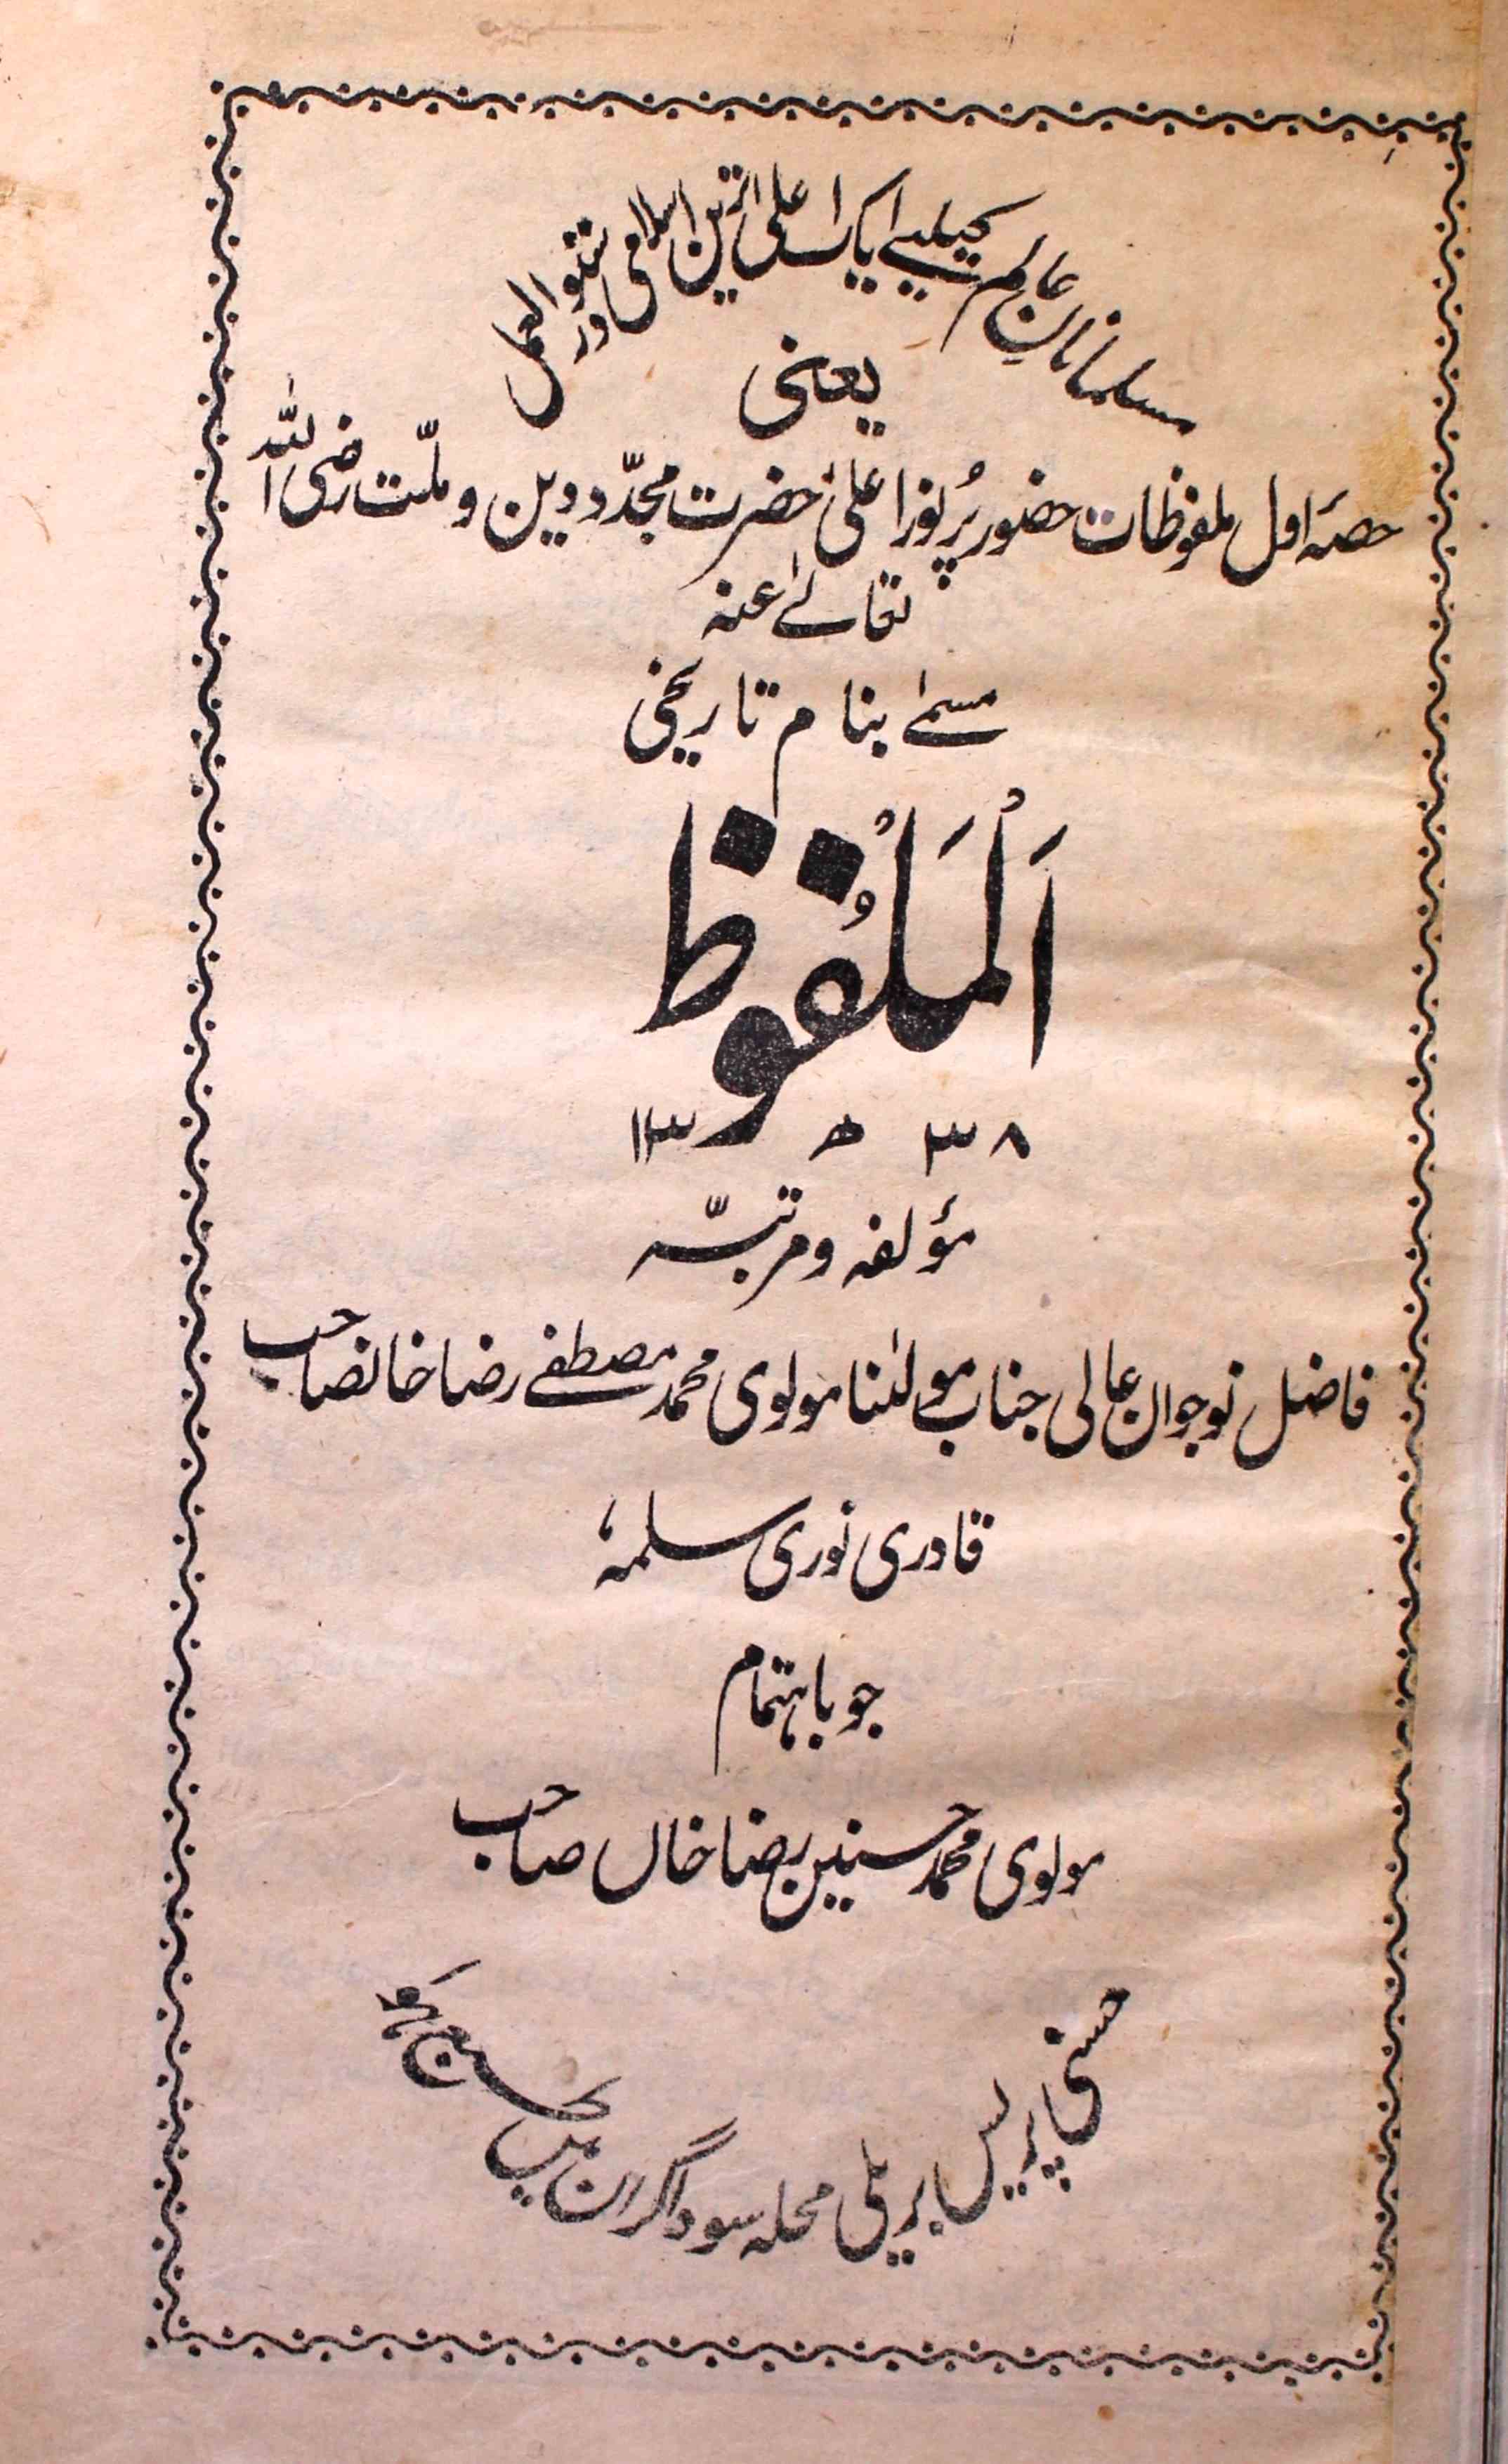 مسلمانانِ عالم کیلیے ایک اعلیٰ ترین اسلامی دستور العمل
یعنی
حصۂ اول ملفوظات حضور پُر نور اعلیٰ حضرت مجدّد دین و ملّت رضی اللہ
تعالےٰ عنہ
مسمےٰ بنام تاریخی
اَلْمَلْفُوظ
۱۳ ھ ۳۸
مؤلفہ و مرتبّہ
فاضل نوجوان عالی جناب مولٰنا مولوی محمد مصطفےٰ رضا خانصاحب
قادری نوری سلمہٗ
جو باہتمام
مولوی محمد حسنین رضا خاں صاحب
حسنی پریس بریلی محلہ سوداگران میں طبع ہو